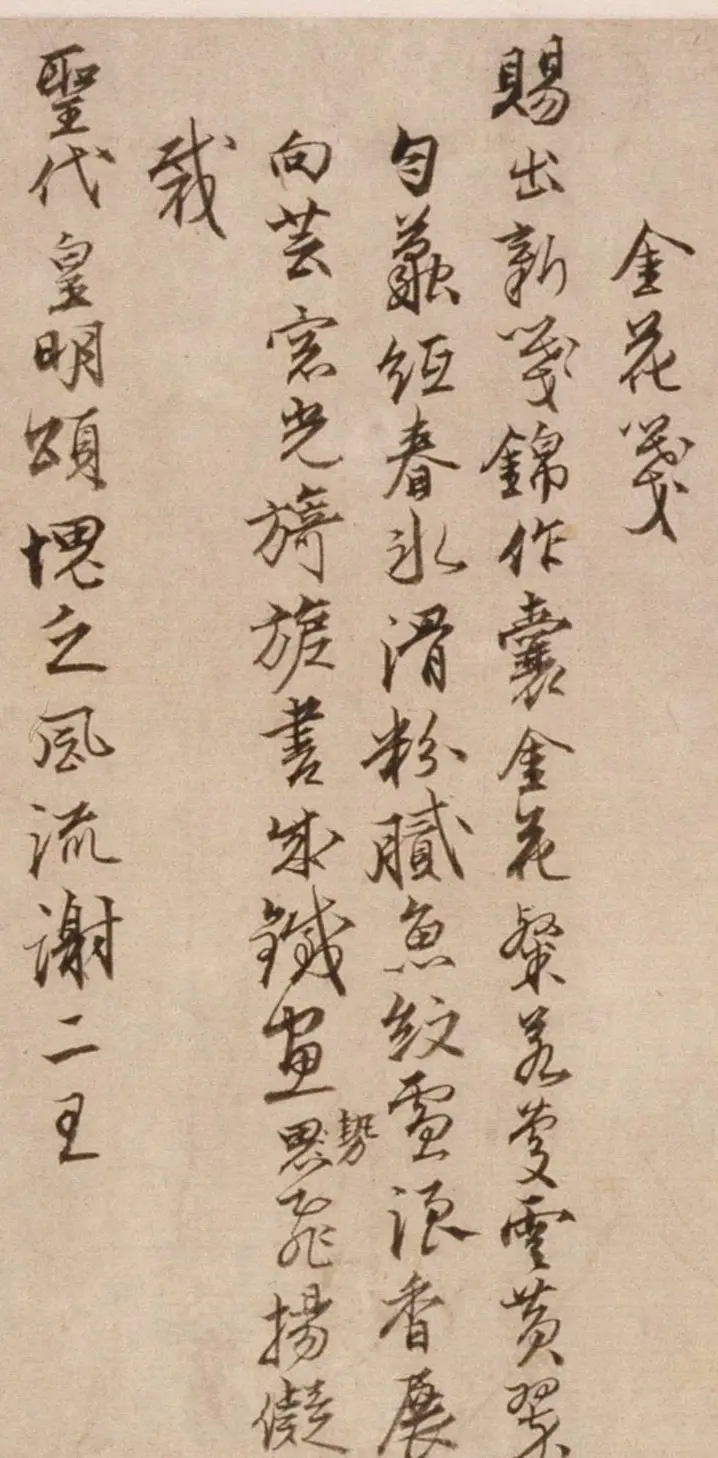 金花箋
賜出新箋錦作囊金花粲若慶雲黃翠
勻蠶紙春冰滑粉膩魚紋雪浪香展
向芸窗光旖旎書成鐵畫思勢飛揚儗
裁
聖代皇明頌愧乏風流謝二王